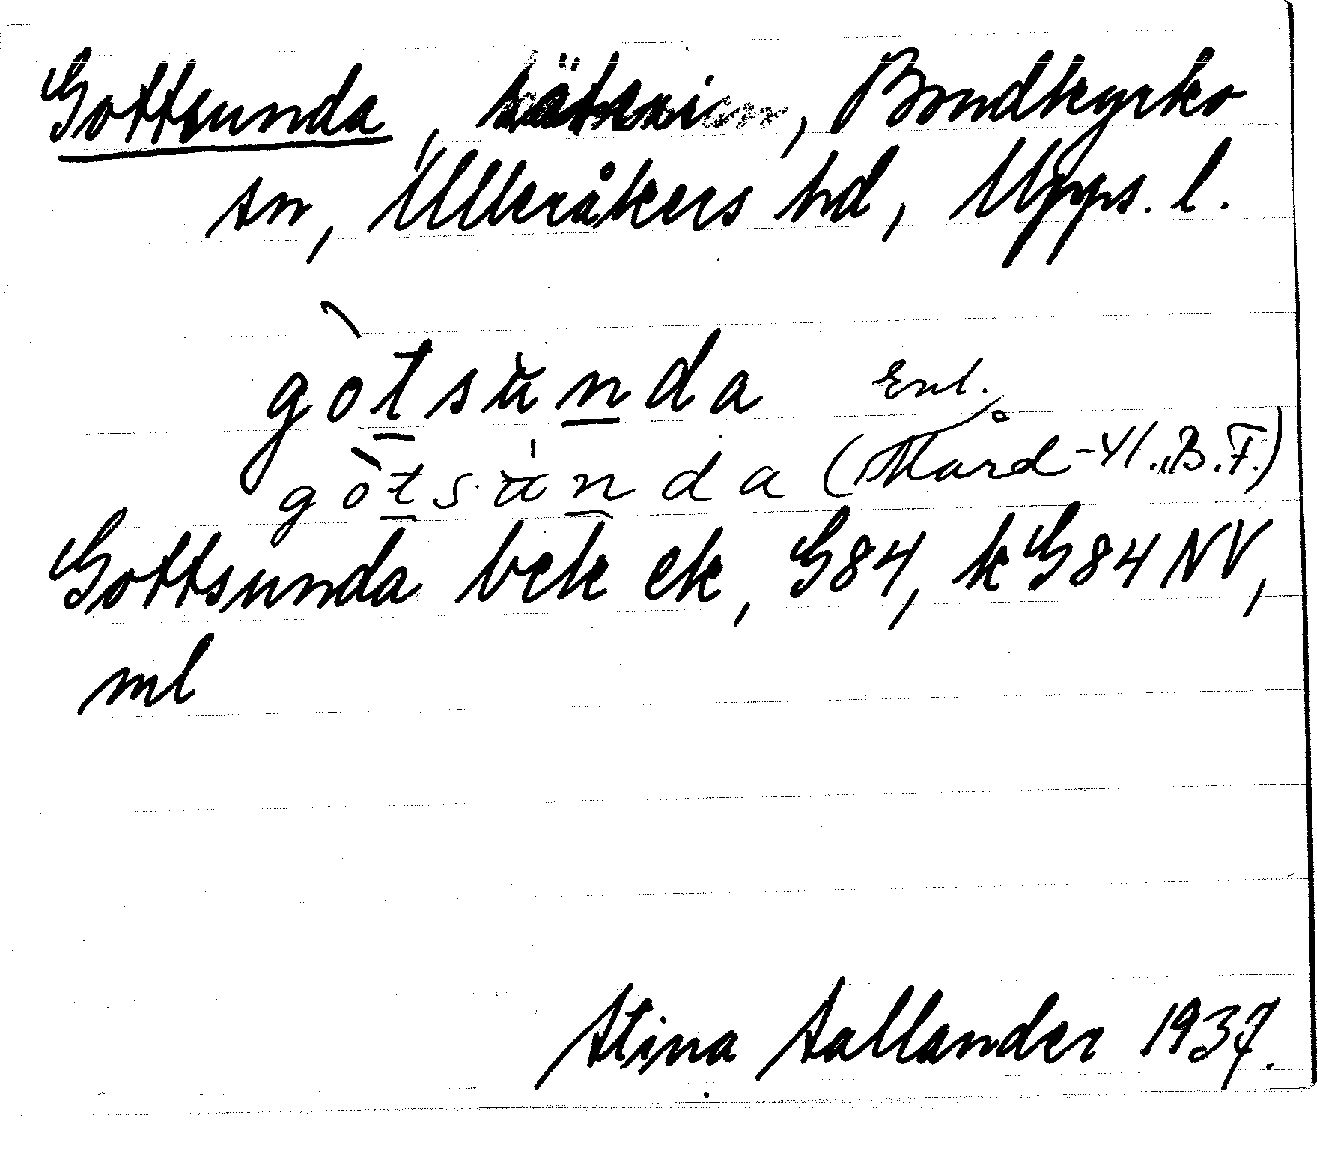 Gottsunda, , Bondkyrko
sn, Ulleråkers hd, Upps. l.
gòtsùnda Enl.
gòtsùnda (Mård -41. B.F.)
Gottsunda bek ek, G84, kG84NV,
ml
Stina Sallander 1937.